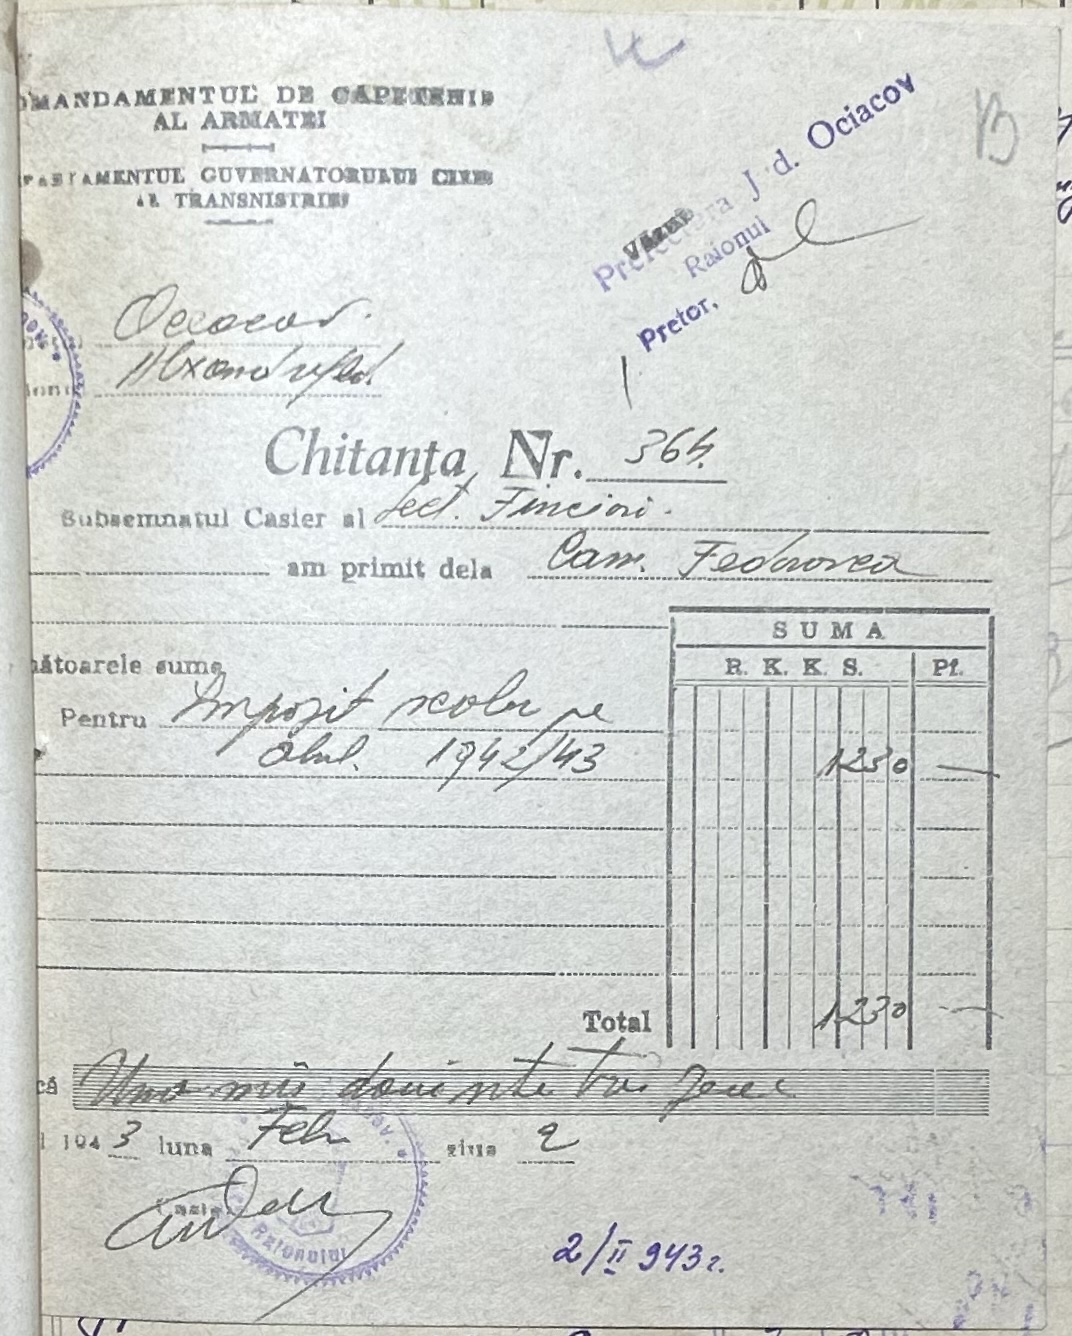 OMANDAMENTUL DE CAPETENIE
AL ARMATEI
PARTAMENTUL GUVERNATORULUI CIVIL
AL TRANSNISTRIEI
Văzut
Prefectura J d. Ociacov
Raionul
Pretor,
Ociacov.
Chitanţa Nr. 364.
Subsemnatul Casier al Sect. Finciari.
am primit dela Com. Fedorovca
SUMA
R. K. K. S. Pf.
ătoarele sume
Pentru Impozit scolar pe
1942/43 1230 —
Total 1230 —
că Una mii două sute trei zeci
l 1943 luna Febr ziua 2
Casier
RAIONULUI
2/II 943 г.